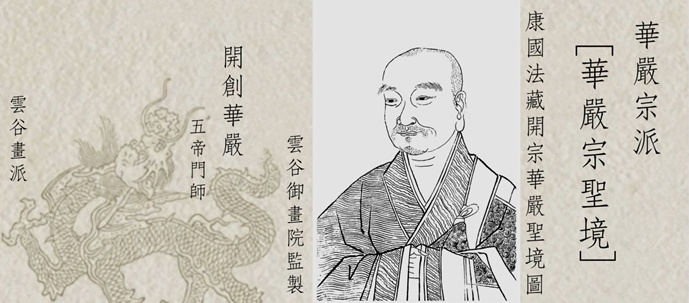 華嚴宗派
[華嚴宗聖境]
康國法藏開宗華嚴聖境圖
雲谷御畫院監製
開創華嚴
五帝門師
雲谷畫派